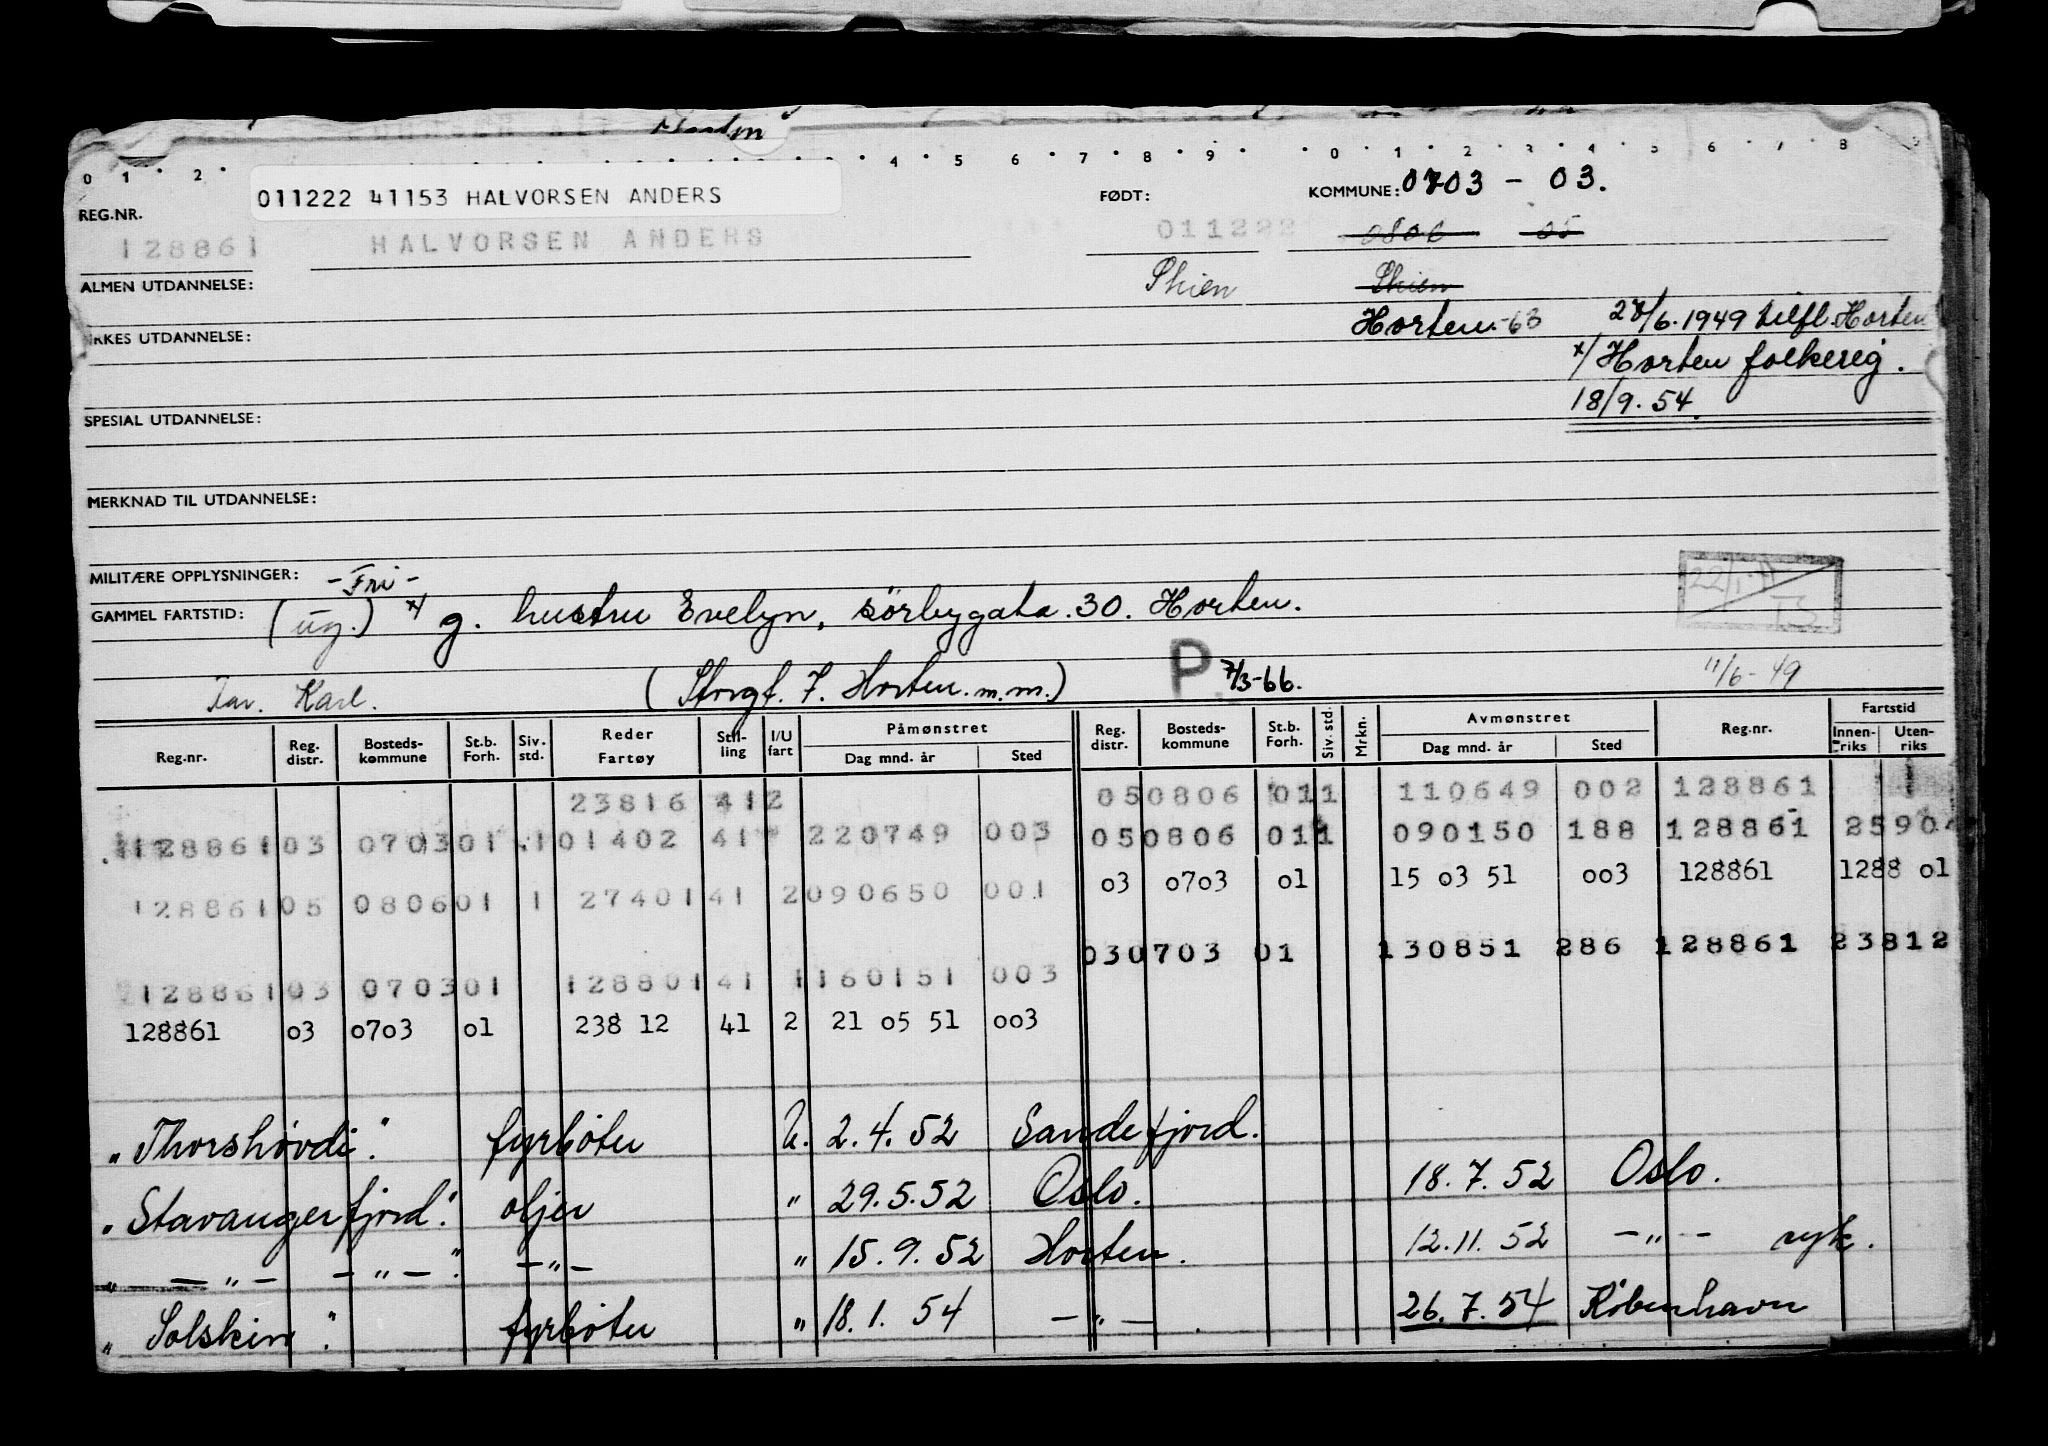 0 1 2 4 5 6 7 8 9 0 1 2 3 4 5 6 7 8
011222 41153 HALVORSEN ANDERS
REG.NR. FØDT: KOMMUNE: 0703 - 03.
128861 HALVORSEN ANDERS 011222 0806 05
ALMEN UTDANNELSE: Skien Skien
Horten.-63 27/6.1949 tilfl. Horten
YRKES UTDANNELSE:
x/ Horten folkereg.
18/9.54.
SPESIAL UTDANNELSE:
MERKNAD TIL UTDANNELSE:
MILITÆRE OPPLYSNINGER: -Fri-
GAMMEL FARTSTID: (ug.) x/ g. hustru Evelyn, sörbygata 30. Horten.
Far. Karl. (Storgt. 7. Horten m.m.) P. 7/3-66. 11/6-49
Reg.nr. Reg. distr. Bosteds- kommune St.b. Forh. Siv. std. Reder Fartøy Stil- ling I/U fart Påmønstret Dag mnd. år Sted Reg. distr. Bosteds- kommune St.b. Forh. Siv. std. Mrkn. Avmønstret Dag mnd. år Sted Reg.nr. Fartstid Innen- riks Uten- riks
23816 412 050806 011 110649 002 128861
128861 03 0703 01 1 01402 41 220749 003 050806 011 090150 188 128861 2590
03 0703 01 15 03 51 003 128861 1288 01
128861 05 0806 01 1 27401 41 2 090650 001
030703 01 130851 286 128861 23812
128861 03 0703 01 12880 1 41 1 160151 003
128861 03 0703 01 238 12 41 2 21 05 51 003
"Thorshøvdi". fyrbøter U. 2.4.52 Sandefjord.
"Stavangerfjord". oljer " 29.5.52 Oslo. 18.7.52 Oslo.
" -"- -"- ". -"- " 15.9.52 Horten. 12.11.52 -"- syk.
"Solskin". fyrbøter " 18.1.54 -"-. 26.7.54 København